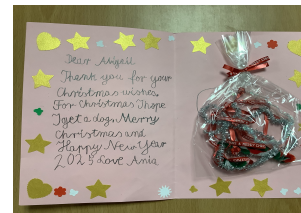 Dear Abigail
Thank you for your
Christmas wishes.
For Christmas I hope
I get a dog. Merry
Christmas and
Happy New Year
2025 Love Ania